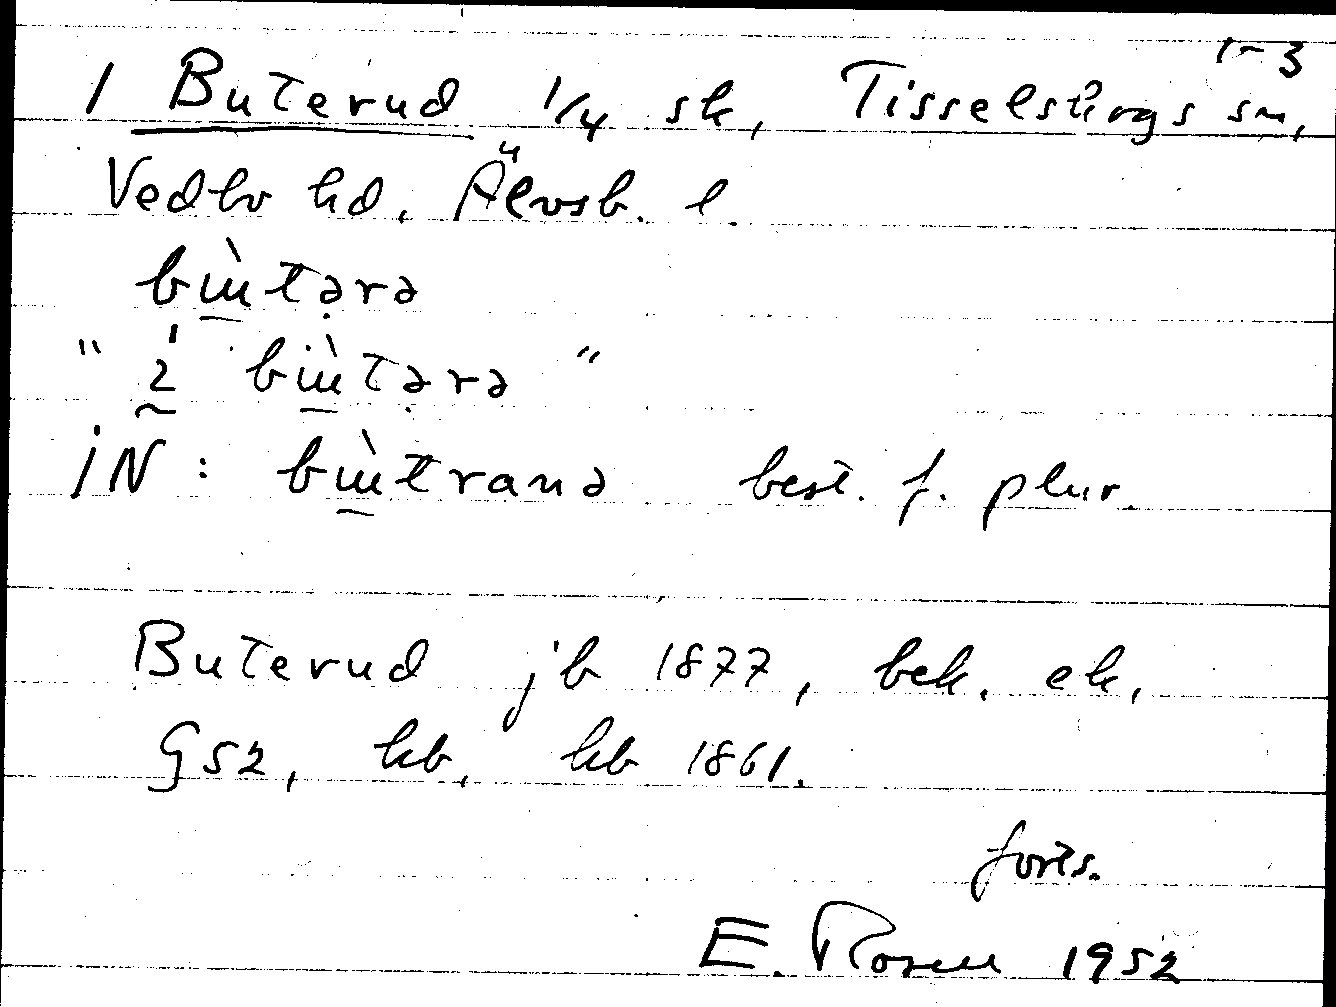 1-3
1 Buterud 1/4 sk, Tisselskogs sn,
Vedbo hd, Älvsb. l.
bùtǝrǝ
"i bùtǝrǝ"
iN: bùtranǝ best. f. plur.
Buterud jb 1877, bek. ek,
G52, kb, kb 1861.
forts.
E. Rosell 1952